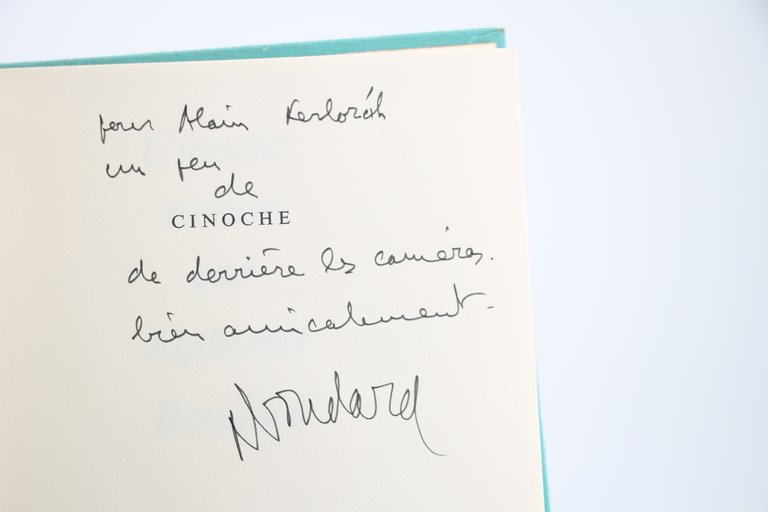 pour Alain Kerlozéh
un peu
de
CINOCHE
de derrière les caméras.
bien amicalement.
ABoudard